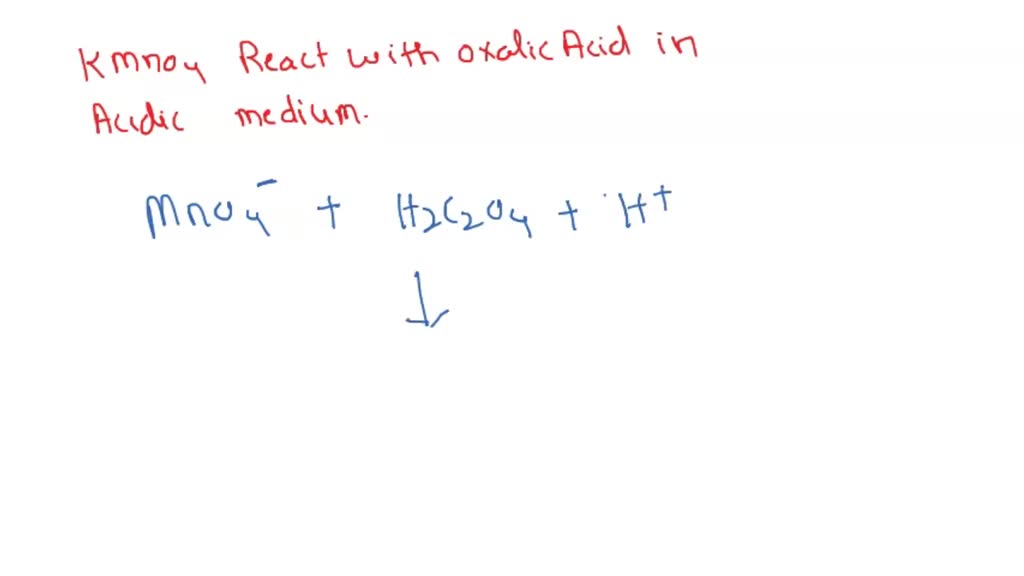 KMnO₄ React with oxalic Acid in
Acidic medium.
MnO₄⁻ + H₂C₂O₄ + H⁺
↓